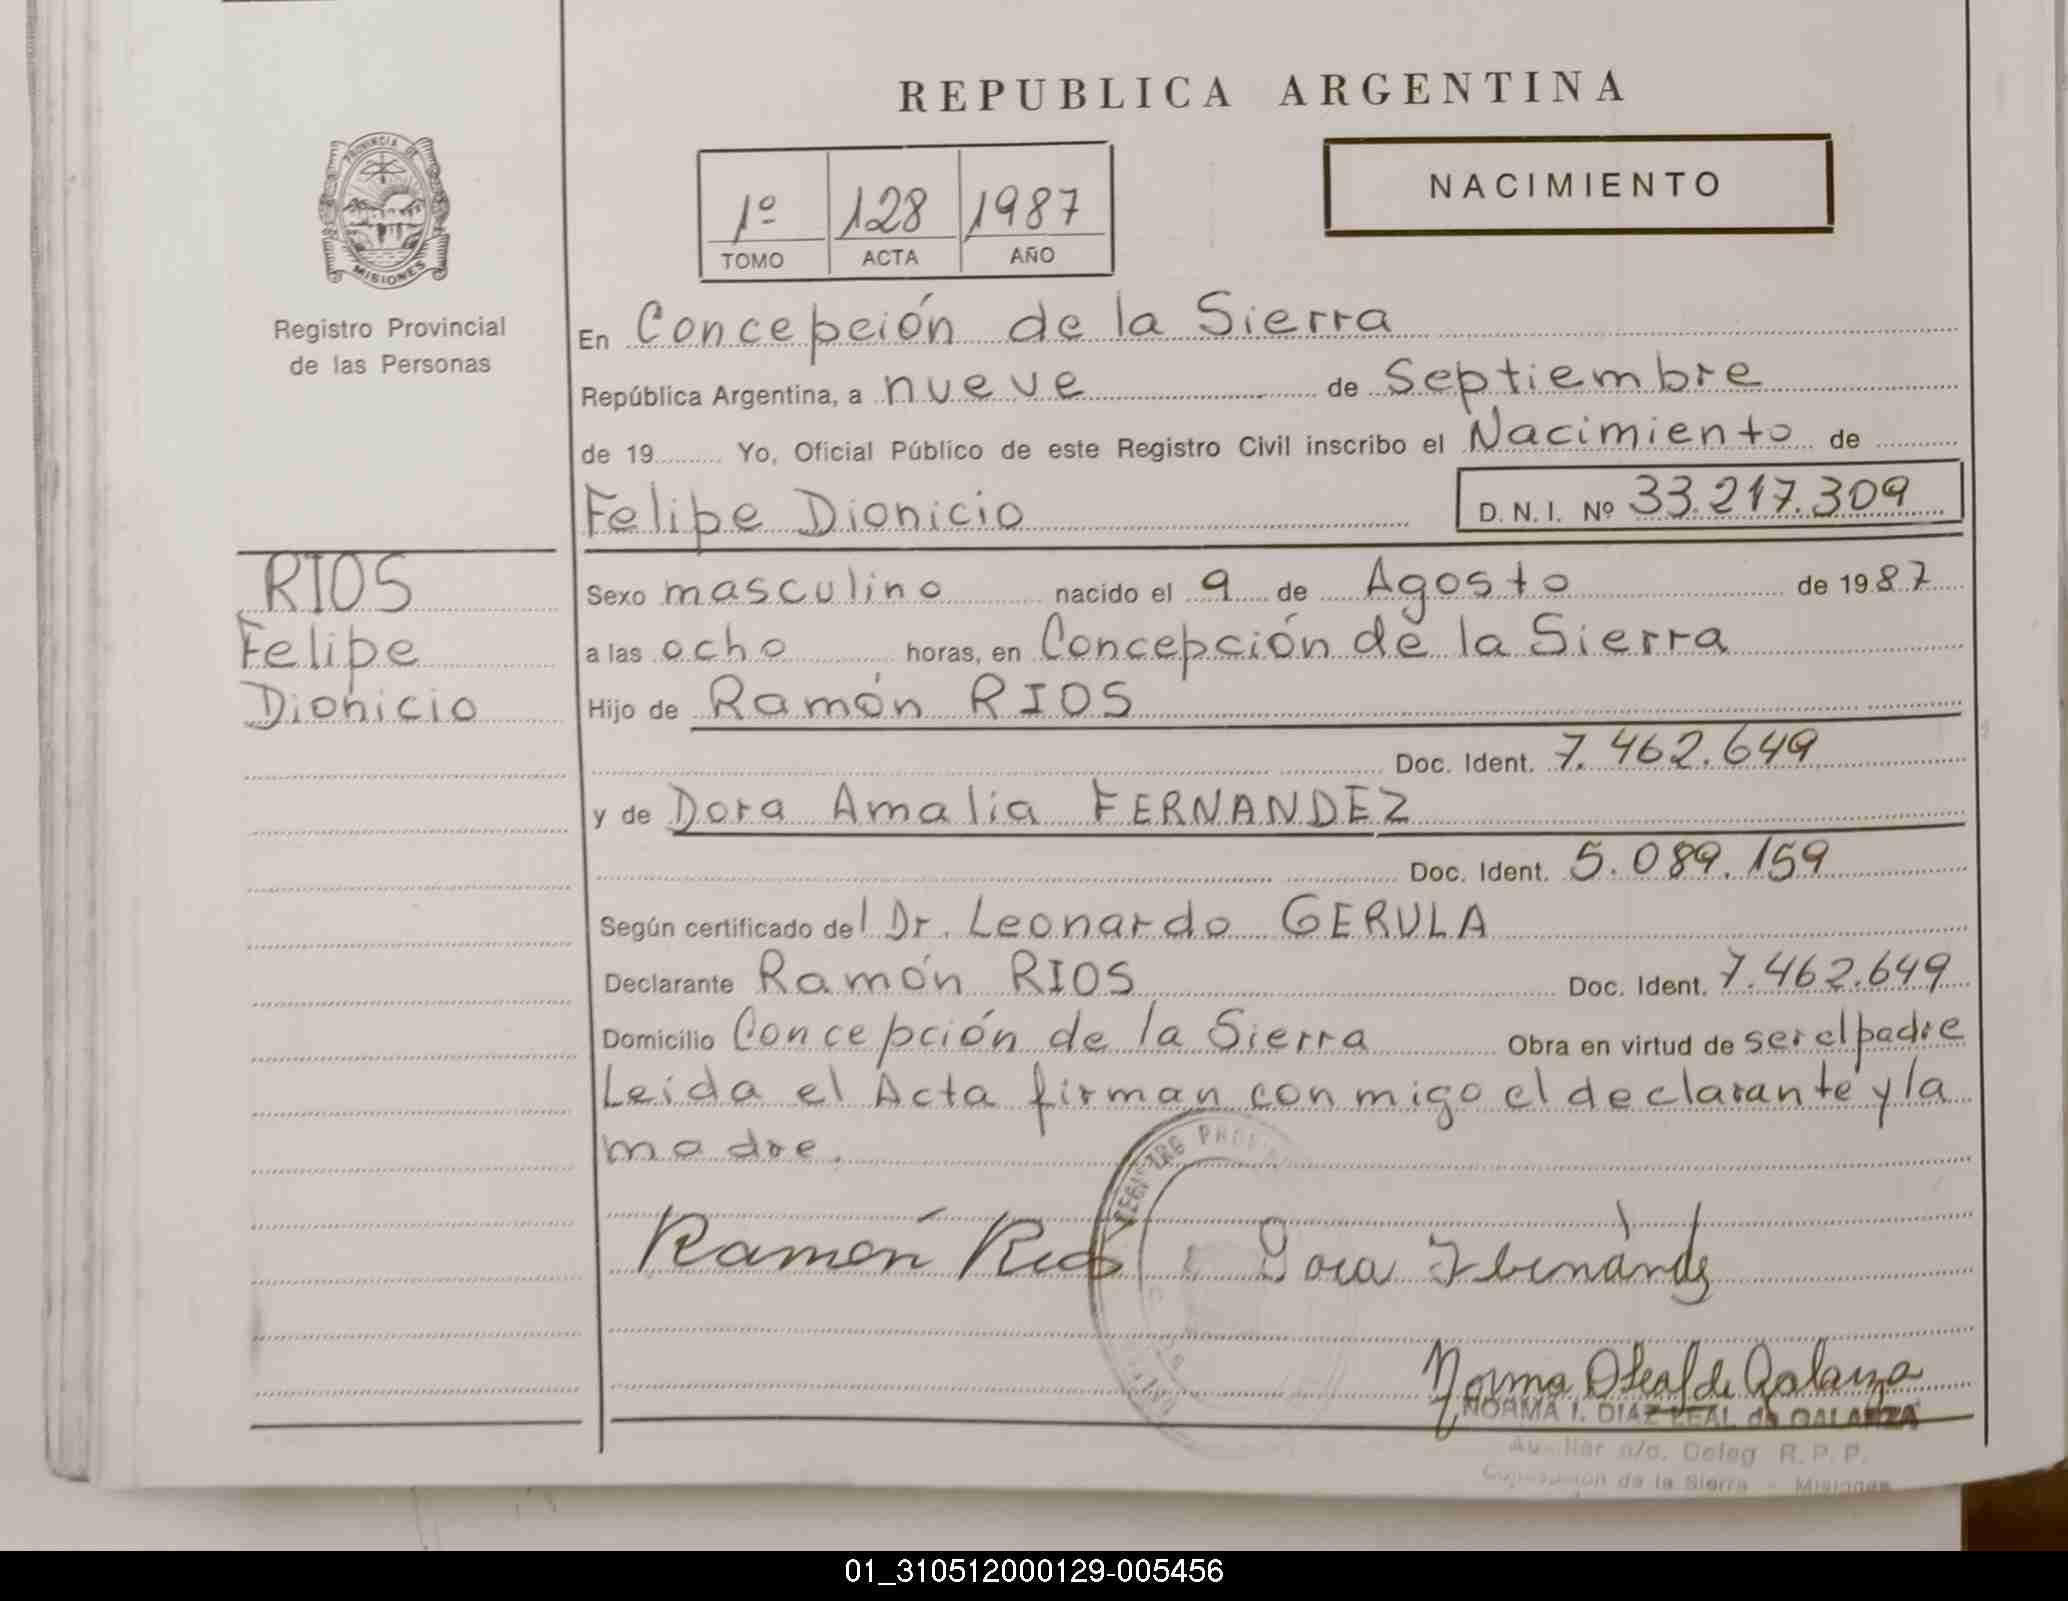 REPUBLICA ARGENTINA
PROVINCIA DE
MISIONES
Registro Provincial
de las Personas
1º 128 1987
TOMO ACTA AÑO
NACIMIENTO
En Concepción de la Sierra
República Argentina, a nueve de Septiembre
de 19 Yo, Oficial Público de este Registro Civil inscribo el Nacimiento de
Felipe Dionicio D. N. I. Nº 33.217.309
RIOS
Felipe
Dionicio
Sexo masculino nacido el 9 de Agosto de 1987
a las ocho horas, en Concepción de la Sierra
Hijo de Ramón RIOS
Doc. Ident. 7.462.649
y de Dora Amalia FERNANDEZ
Doc. Ident. 5.089.159
Según certificado del Dr. Leonardo GERULA
Declarante Ramón RIOS Doc. Ident. 7.462.649
Domicilio Concepción de la Sierra Obra en virtud de ser el padre
Leida el Acta firman conmigo el declarante y la
madre.
REGISTRO
Ramón Rios Dora Fernández
Norma de Galarza
NORMA I. DIAZ LEAL de GALARZA
Deleg R. P. P.
de la Sierra - Misiones
01_310512000129-005456